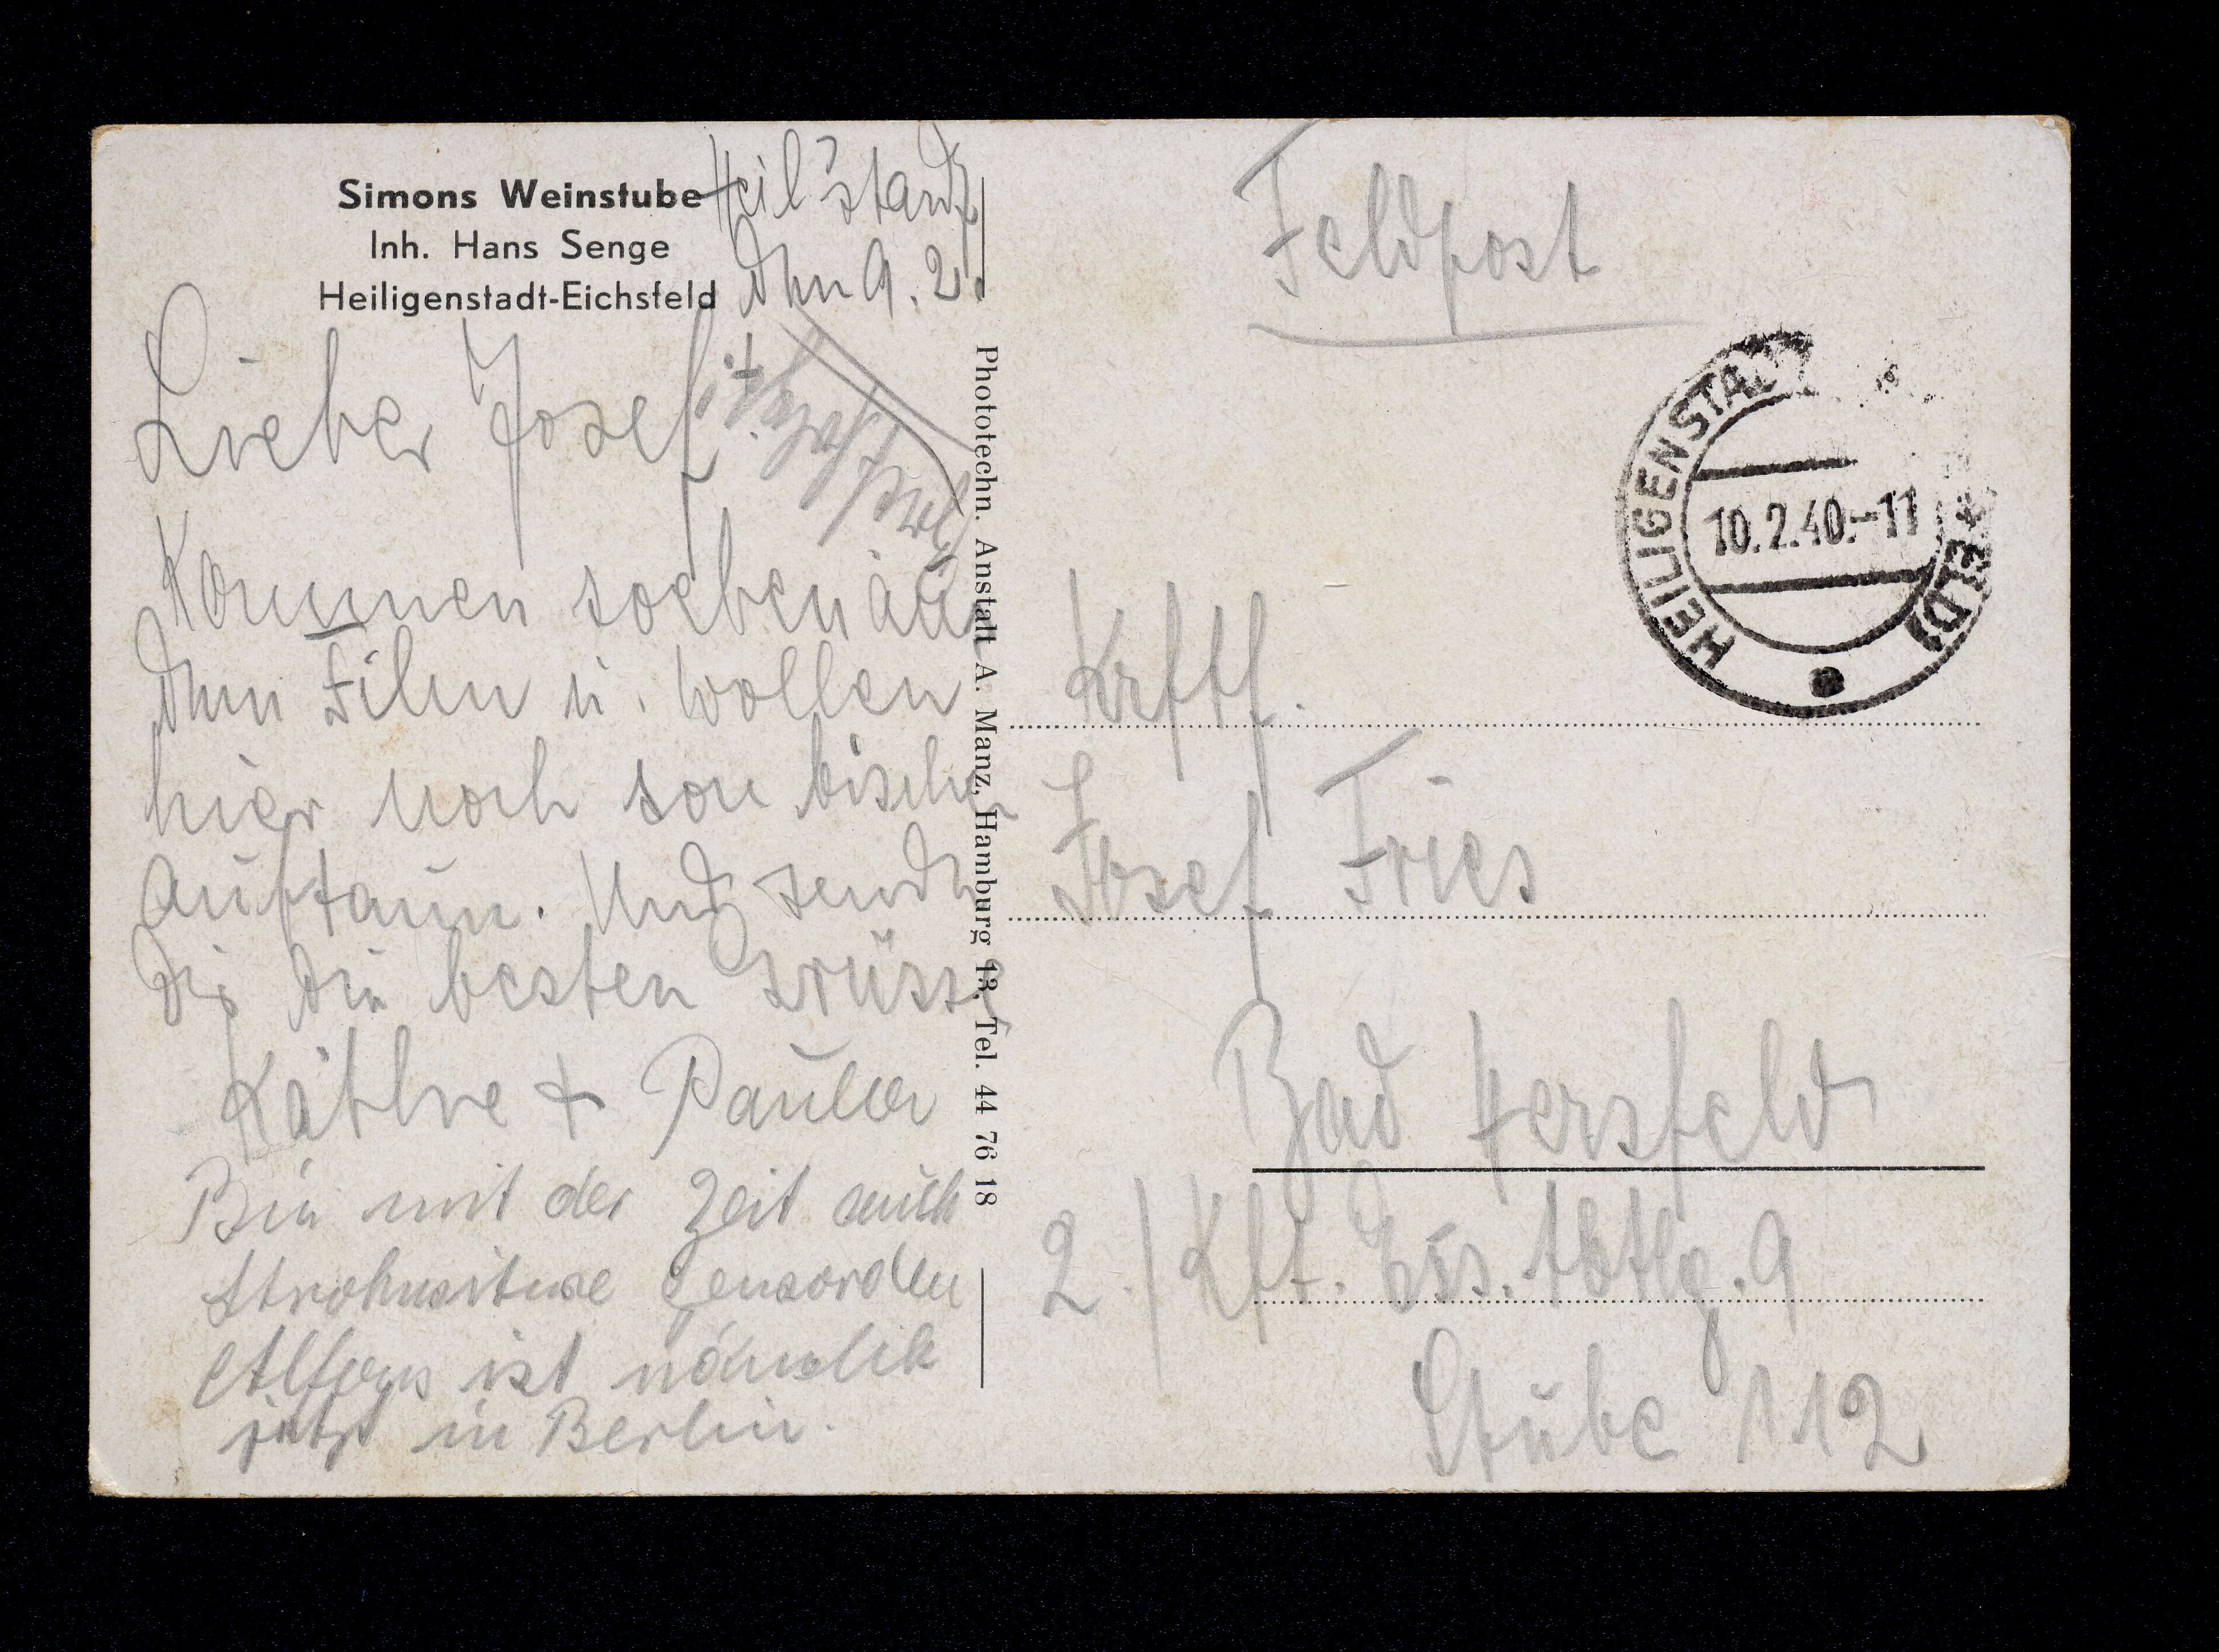 Simons Weinstube
Inh. Hans Senge
Heiligenstadt-Eichsfeld
Heil'stadt
den 9. 2.
Lieber Josef!
Kommen soeben aus
dem Film u. wollen
hier noch son bischen
auftaun. Und senden
Dir die besten Grüsse
Käthe + Paula
Bin mit der Zeit auch
Strohwitwe geworden
Alfons ist nämlich
jetzt in Berlin.
Phototechn. Anstalt A. Manz, Hamburg 13, Tel. 44 76 18
Feldpost
HEILIGENSTADT (EICHSFELD)
10.2.40.-11
Krftf.
Josef Fries
Bad Hersfeld
2./Kft. Ers. Abtlg. 9
Stube 112